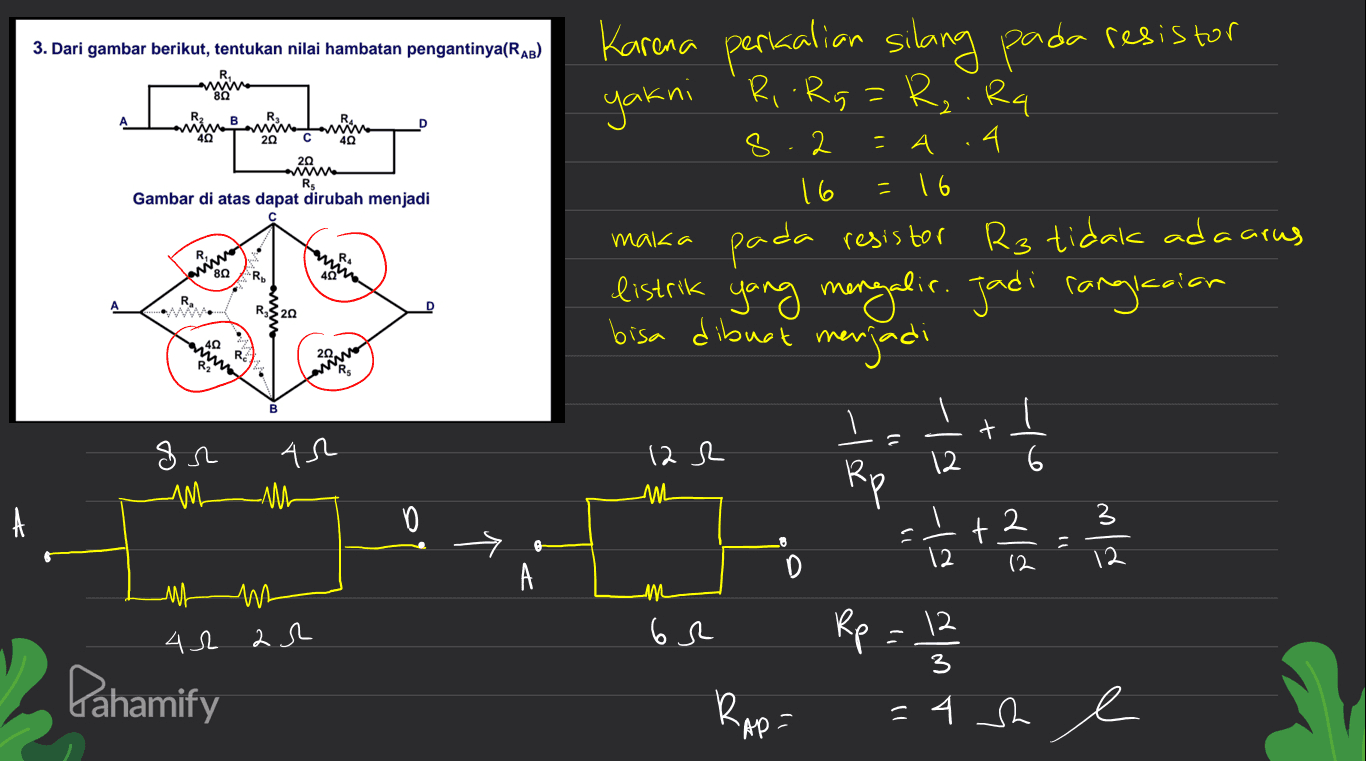 3. Dari gambar berikut, tentukan nilai hambatan pengantinya(R_AB)
R₁
8Ω
A R₂ B R₃ R₄ D
4Ω 2Ω C 4Ω
2Ω
R₅
Gambar di atas dapat dirubah menjadi
C
R₁ R₄
8Ω R_b 4Ω
A R_a R₃ 2Ω D
4Ω R_c 2Ω
R₂ R₅
B
Karena perkalian silang pada resistor
yakni R₁ . R₅ = R₂ . R₄
8 . 2 = 4 . 4
16 = 16
maka pada resistor R₃ tidak ada arus
listrik yang mengalir. Jadi rangkaian
bisa dibuat menjadi
8 Ω 4 Ω
A D
4 Ω 2 Ω
→
12 Ω
A D
6 Ω
1/Rp = 1/12 + 1/6
= 1/12 + 2/12 = 3/12
Rp = 12/3
R_AD = = 4 Ω
Pahamify